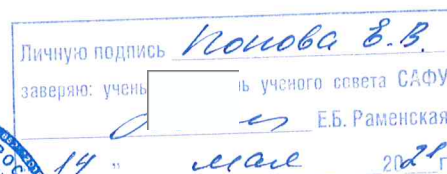 Личную подпись Попова Е.В.
заверяю: учень ль ученого совета САФУ
Е.Б. Раменская
14 " мая 2021 г